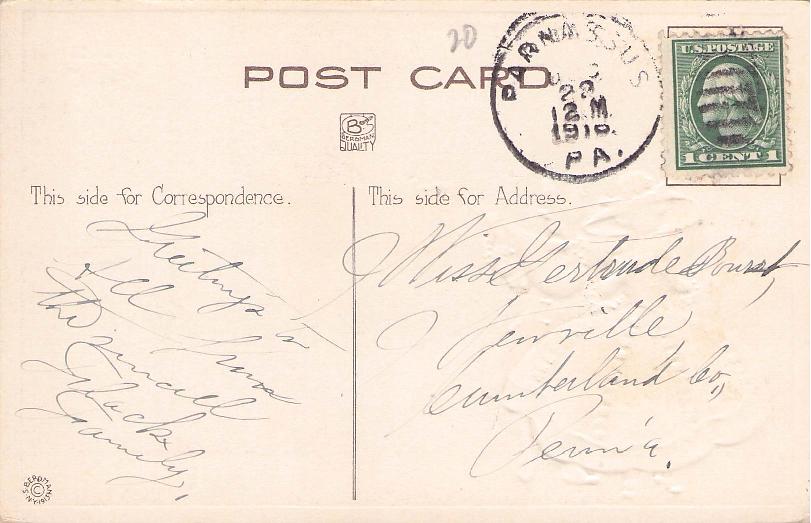 20
POST CARD
PARNASSUS
22
12 M
PA.
U.S. POSTAGE
1 CENT 1
BERGMAN
QUALITY
This side for Correspondence.
This side for Address.
Greetings to
all from
the small
Black
family,
Miss Gertrude
Newville
Cumberland Co.,
Penn'a.
S. BERGMAN
©
N.Y. 1913